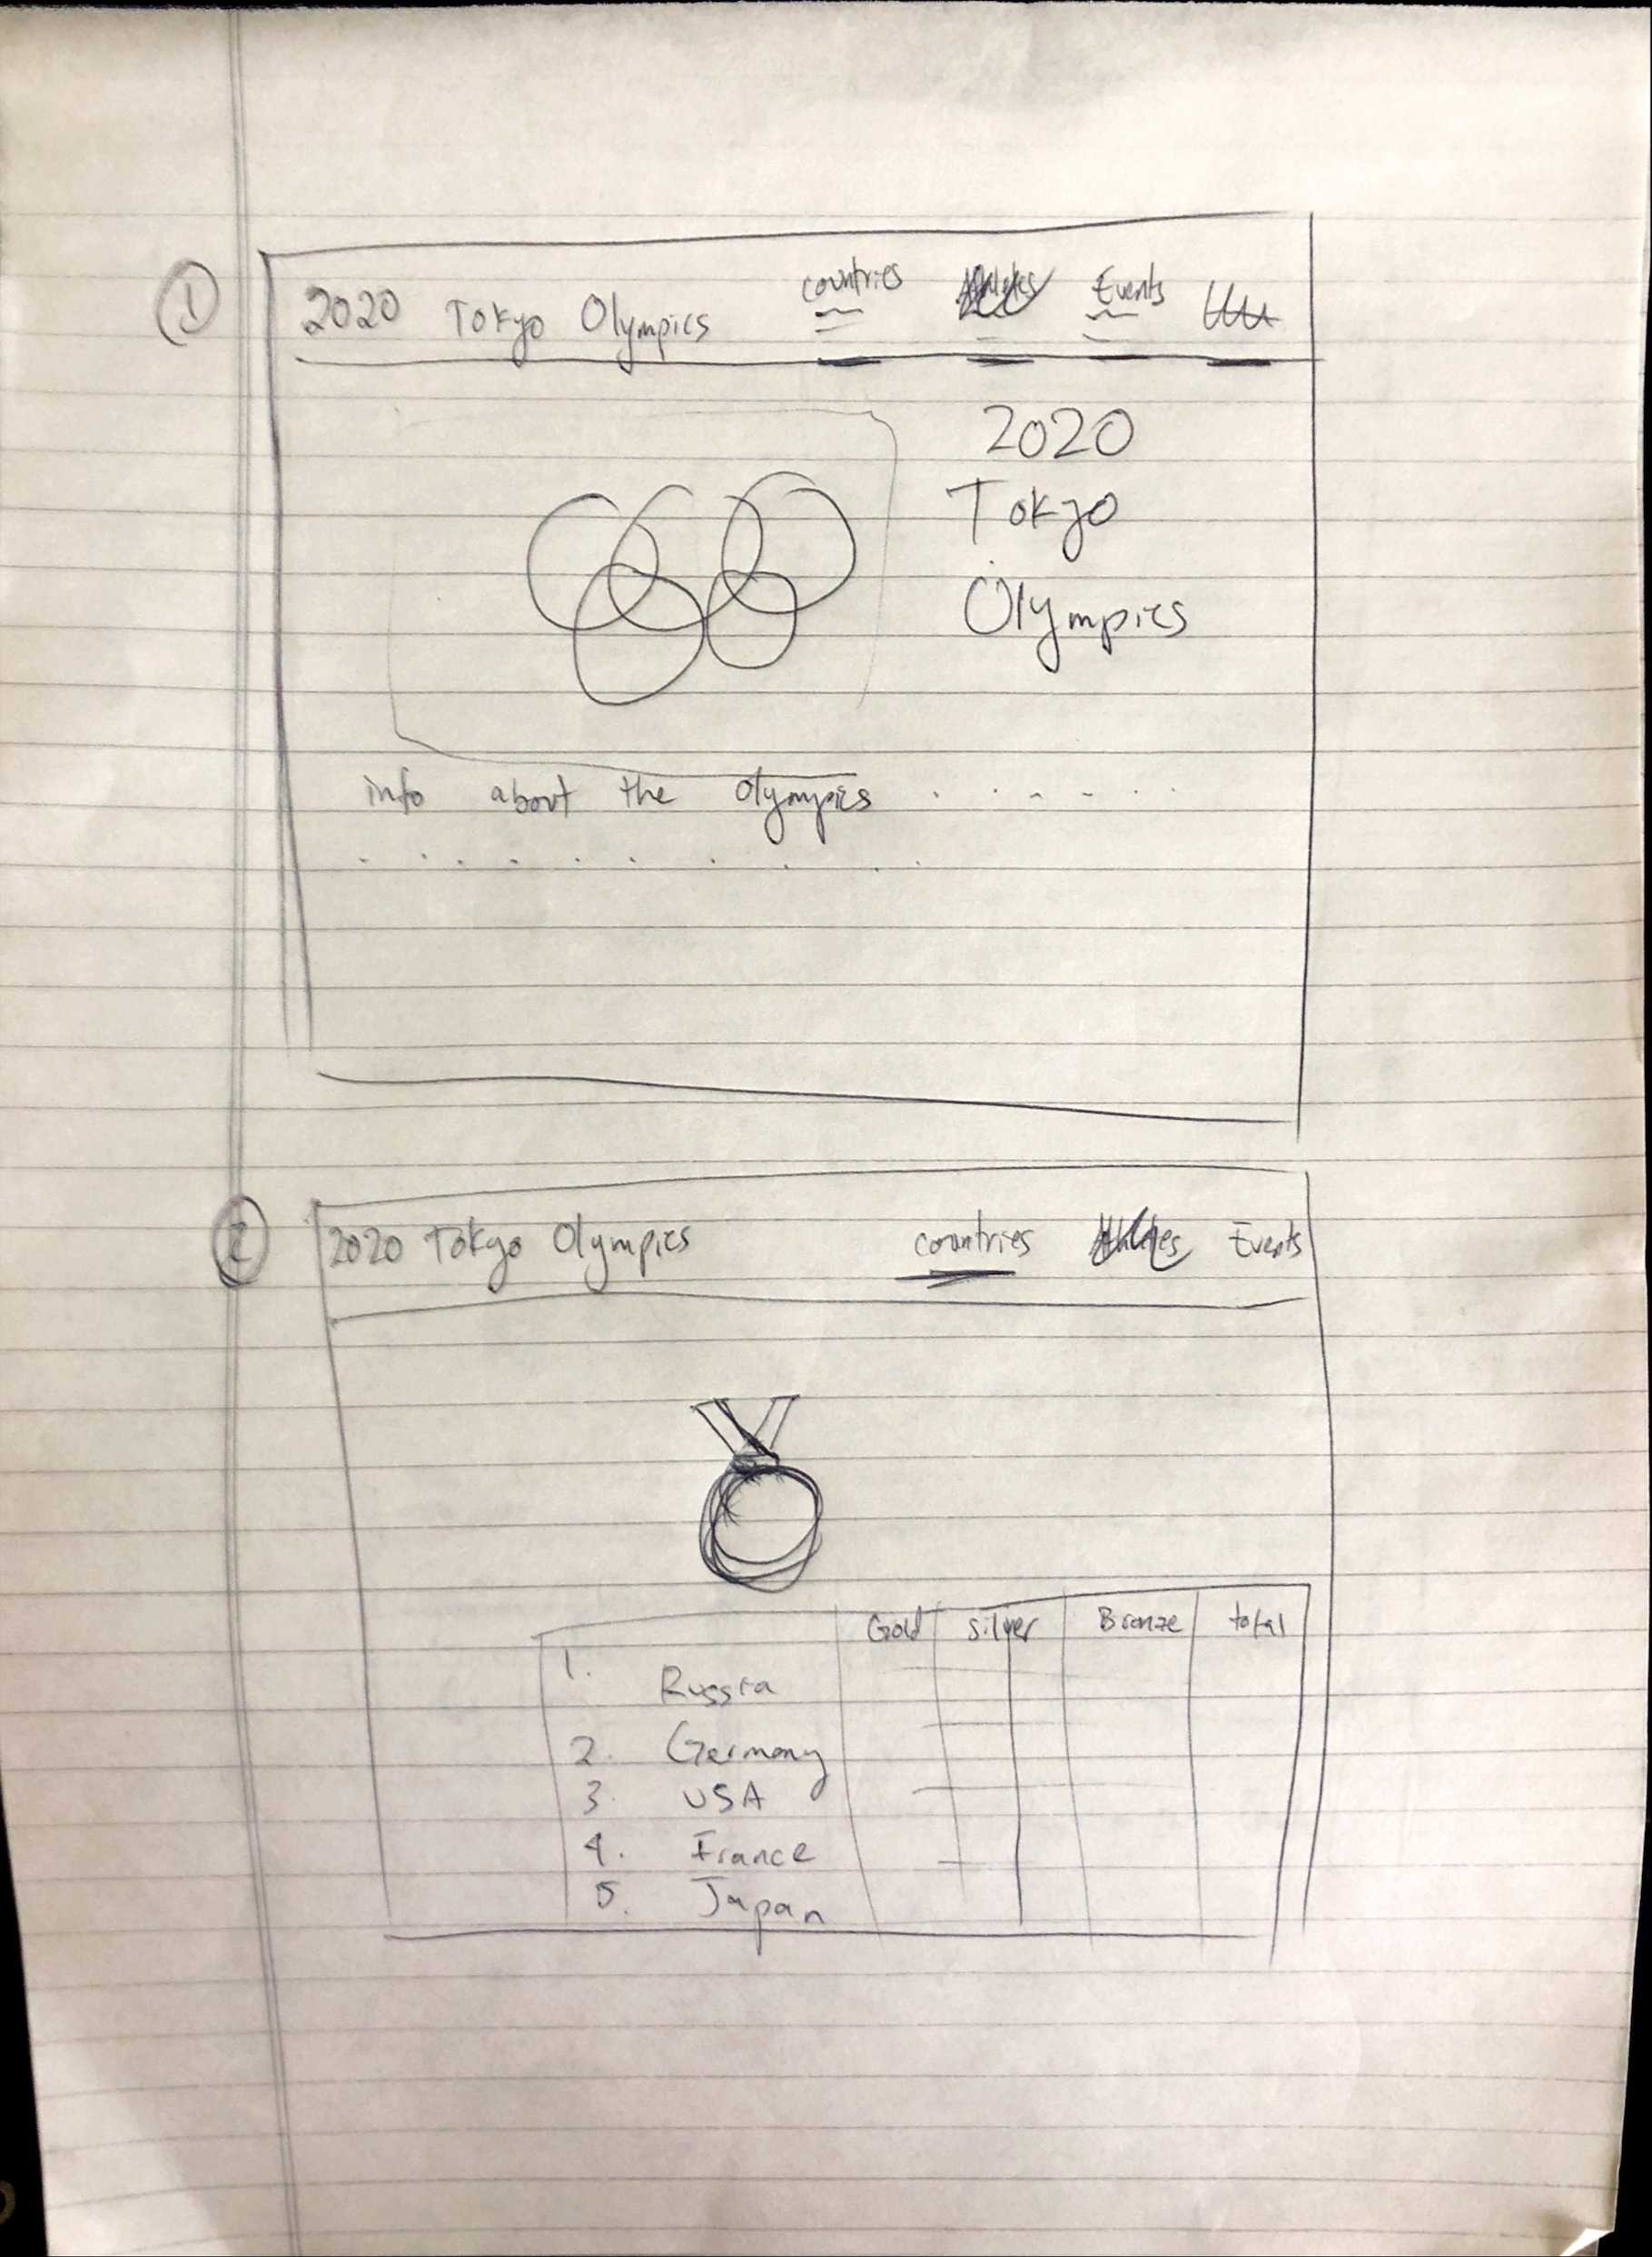 1
2020 Tokyo Olympics countries Events
2020
Tokyo
Olympics
info about the Olympics . . . . . .
. . . . . . . . .
2
2020 Tokyo Olympics countries Events
Gold silver Bronze total
1. Russia
2. Germany
3. USA
4. France
5. Japan